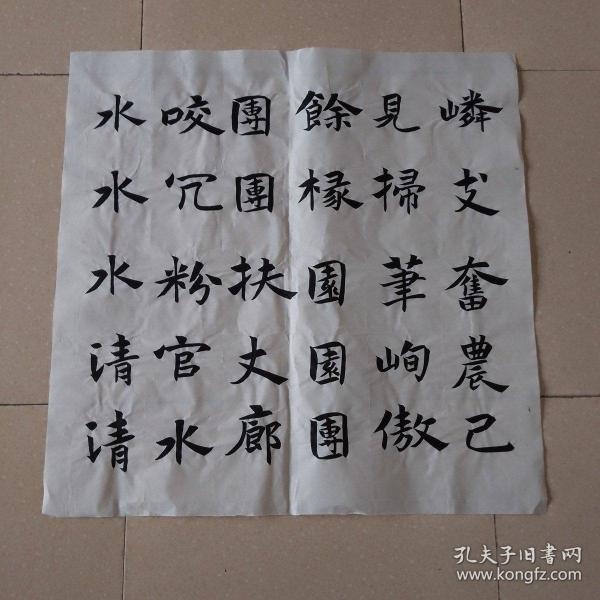 嶙奮農己
見掃筆峋傲
餘椽園園團
團團扶丈廊
咬冗粉官水
水水水清清
孔夫子旧書网
www.kongfz.com